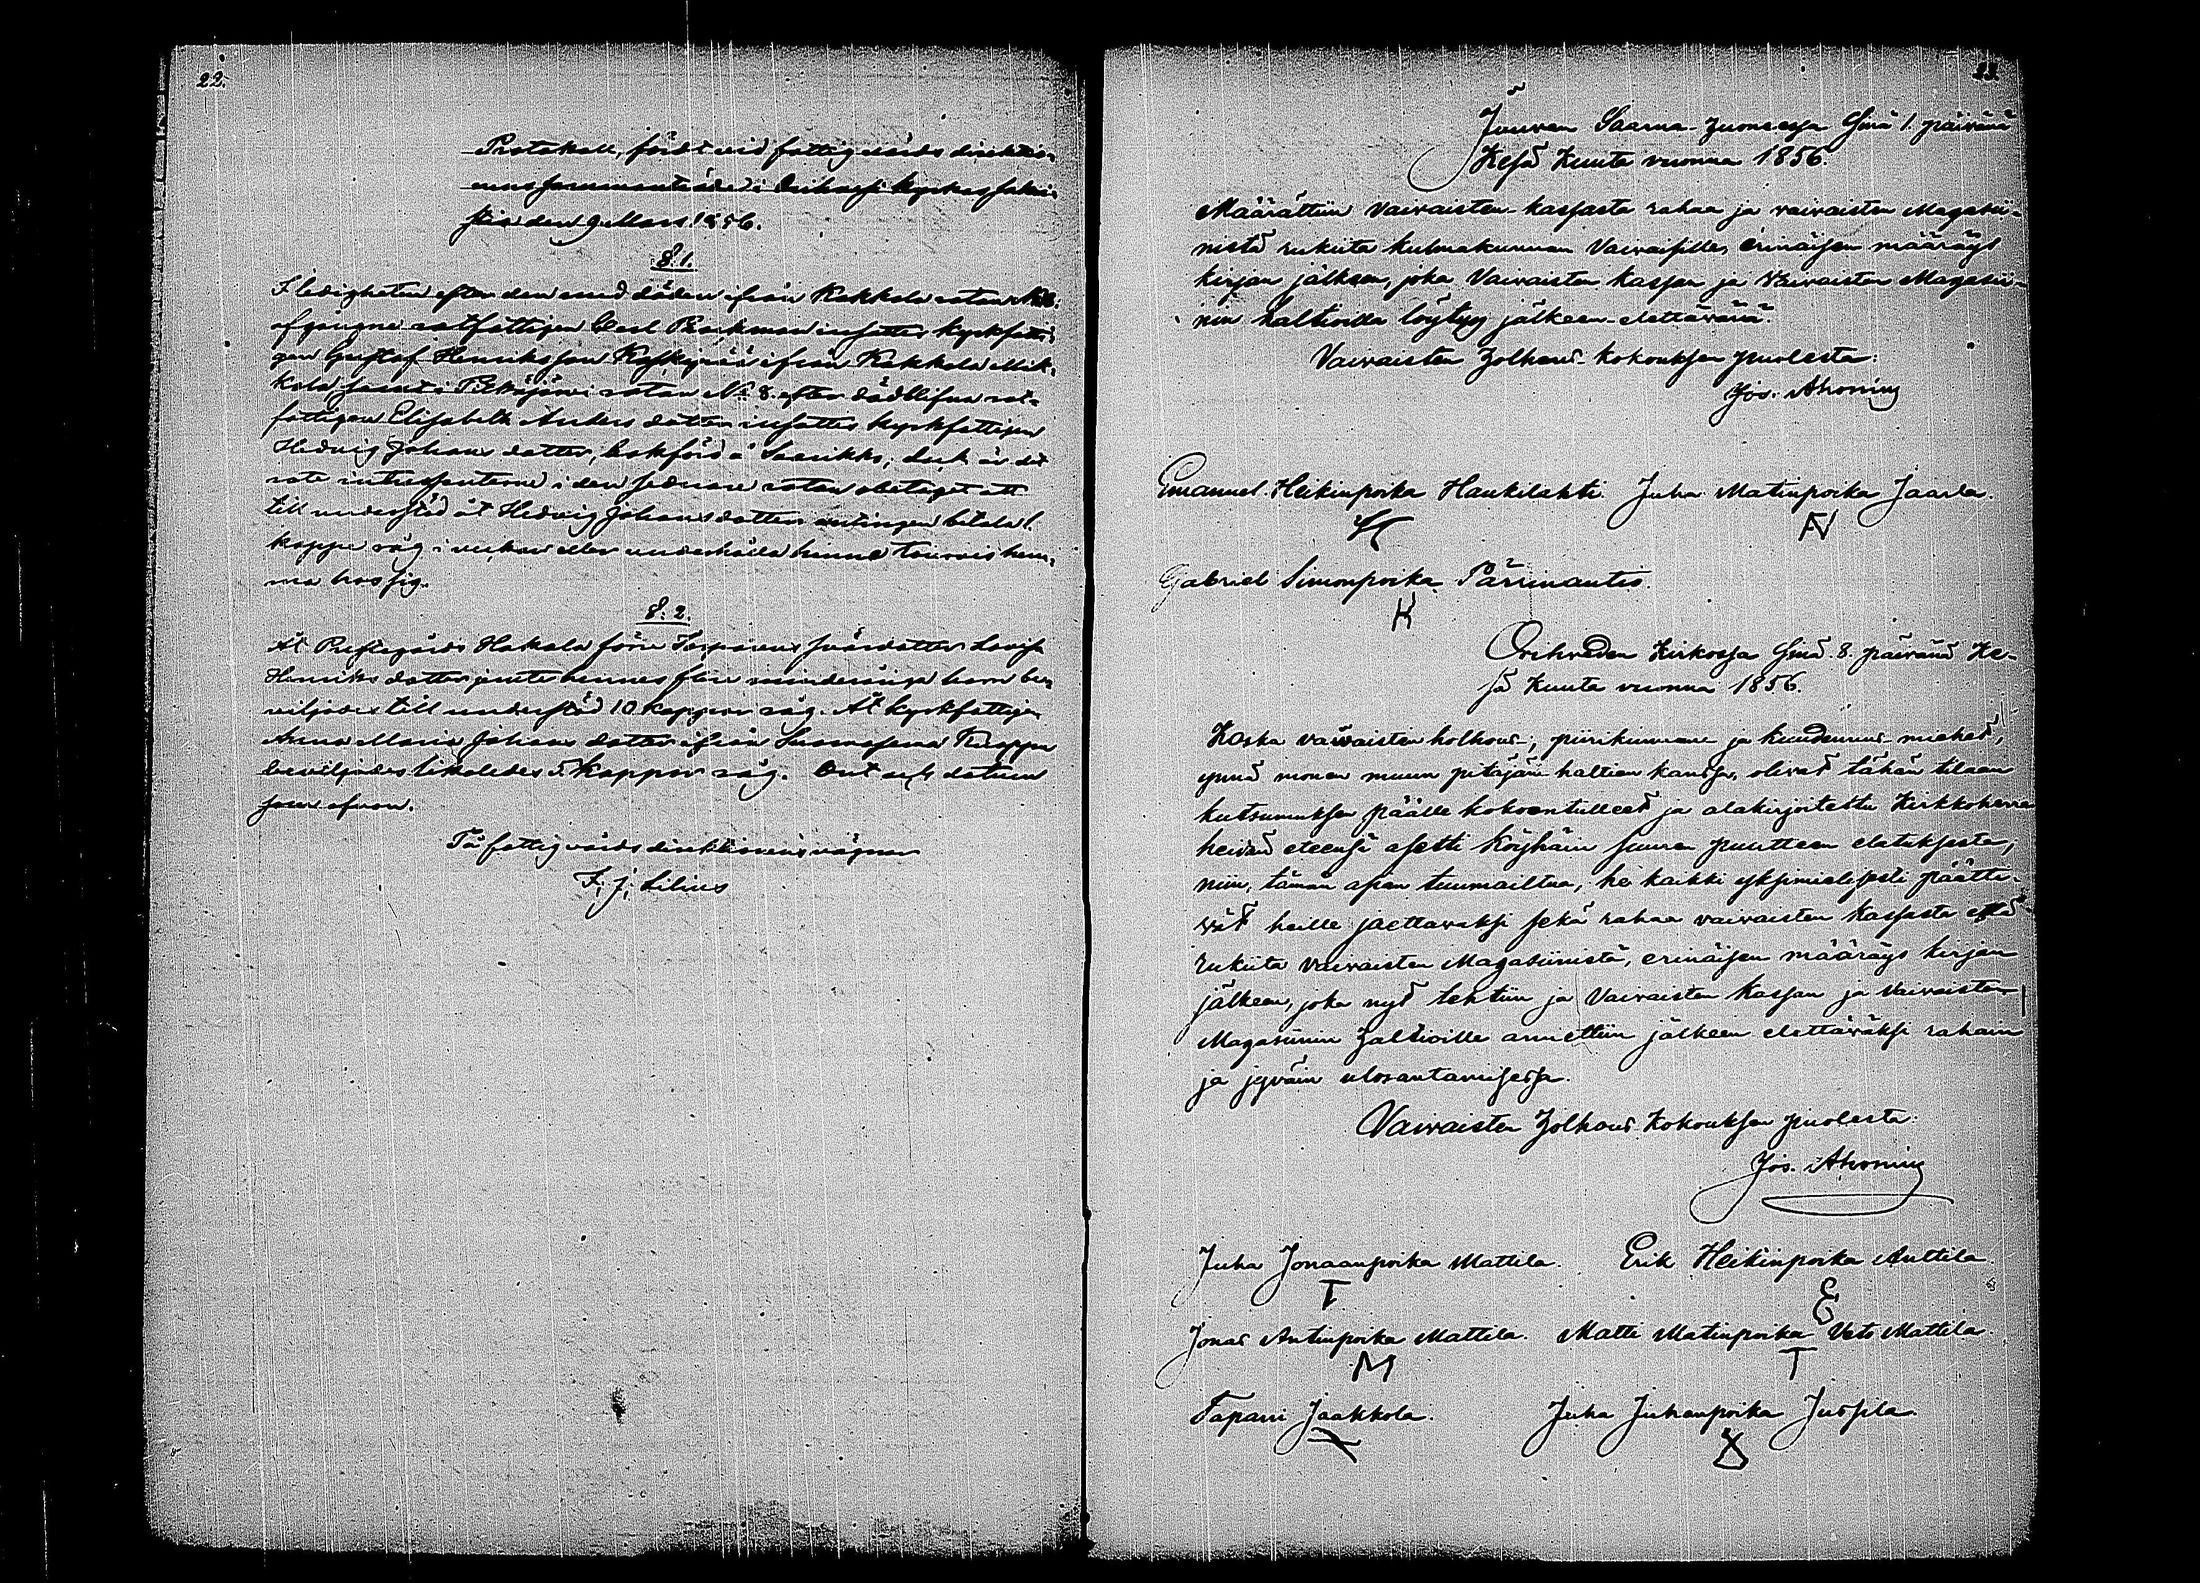 22.
Protokoll, fördt vid fattigvårds direktio-
nens sammanträde i Orihvesi kyrkas sakri-
stia den 9 Mars 1856.
§. 1.
I ledigheten efter den med döden ifrån Kakkola rotan No 8.
afgångne rotfattigen Carl Backman insattes kyrkfatti-
gen Gustaf Henriksson ifrån Kakkola Mik-
kola, samt i Pitkäjärvi rotan No 8. efter dödblifna rot-
fattigen Elisabeth Anders dotter insattes kyrkfattigen
Hedvig Johans dotter, bokförd å Saarikko; dock är det
rote intressenterne i den sednare rotan obetaget att
till understöd åt Hedvig Johansdotter antingen betala 1.
kappe råg i veckan eller underhålla henne tourvis hem-
ma hos sig.
§. 2.
Åt Prestegårds Hakala förre Torparens svärdotter Lovisa
Henriks dotter jemte hennes flere minderåriga barn be-
viljades till understöd 10 kappar råg. Åt kyrkfattigen
Anna Maria Johans dotter ifrån
beviljades likaledes 5 kappar råg. Ort och datum
som ofvan.
På fattigvårds direktionens vägnar
F. J. Lilius
23.
Juuvan Saarna-huoneessa Sinä 1. päivänä
Kesä Kuuta vuonna 1856.
Määrättiin Vaivaisten-kassasta rahaa ja vaivaisten Magasii-
nista rukiita kulmakunnan Vaivaisille, erinäisen määräys
kirjan jälkeen, joka Vaivaisten kassan ja Vaivaisten Magasii-
nin haltioilla löytyy jälkeen-elettävänä.
Vaivaisten Holhous-kokouksen puolesta:
Jos. Ahoning
Emanuel Heikinpoika Haukilahti. Juha Matinpoika Jaarla.
N
Gabriel Simonpoika Pärrinautio.
K
Orihveden Kirkossa Sinä 8. päivänä Ke-
sä Kuuta vuonna 1856.
Koska vaivaisten holhous-, piirikunnan ja kuudennus-miehet,
ynnä monen muun pitäjän haltian kanssa, olivat tähän tilaan
kutsumuksen päälle kokoontulleet ja alakirjoitettu Kirkkoherra
heidän eteensä asetti köyhäin suuren puutteen elatuksesta,
niin, tämän asian tuumailtua, he kaikki yksimielisesti päätti-
vät heille jaettavaksi sekä rahaa vaivaisten kassasta että
rukiita vaivaisten Magasiinista, erinäisen määräys kirjan
jälkeen, joka nyt tehtiin ja Vaivaisten Kassan ja Vaivaisten
Magasiinin haltioille annettiin jälkeen elettäväksi rahain
ja jyväin ulosantamisessa.
Vaivaisten Holhous Kokouksen puolesta:
Jos. Ahoning
Juha Jonaanpoika Mattila. Erik Heikinpoika Anttila
T E
Jonas Antinpoika Mattila. Matti Matinpoika Veto Mattila
M T
Tapani Jaakkola. Juha Juhanpoika Jussila.
X